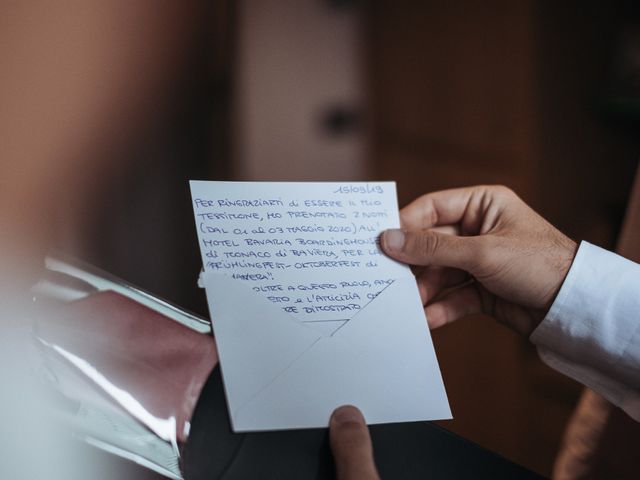 15/09/19
PER RINGRAZIARTI di ESSERE IL MIO
TESTIMONE, HO PRENOTATO 2 NOTTI
(DAL 01 al 03 MAGGIO 2020) ALL'
HOTEL BAVARIA BOARDINGHOUSE
di MONACO di BAVIERA, PER LA
"FRÜHLINGFEST-OKTOBERFEST di
OLTRE A QUESTO RUOLO,
e L'AMICIZIA
DIMOSTRATO